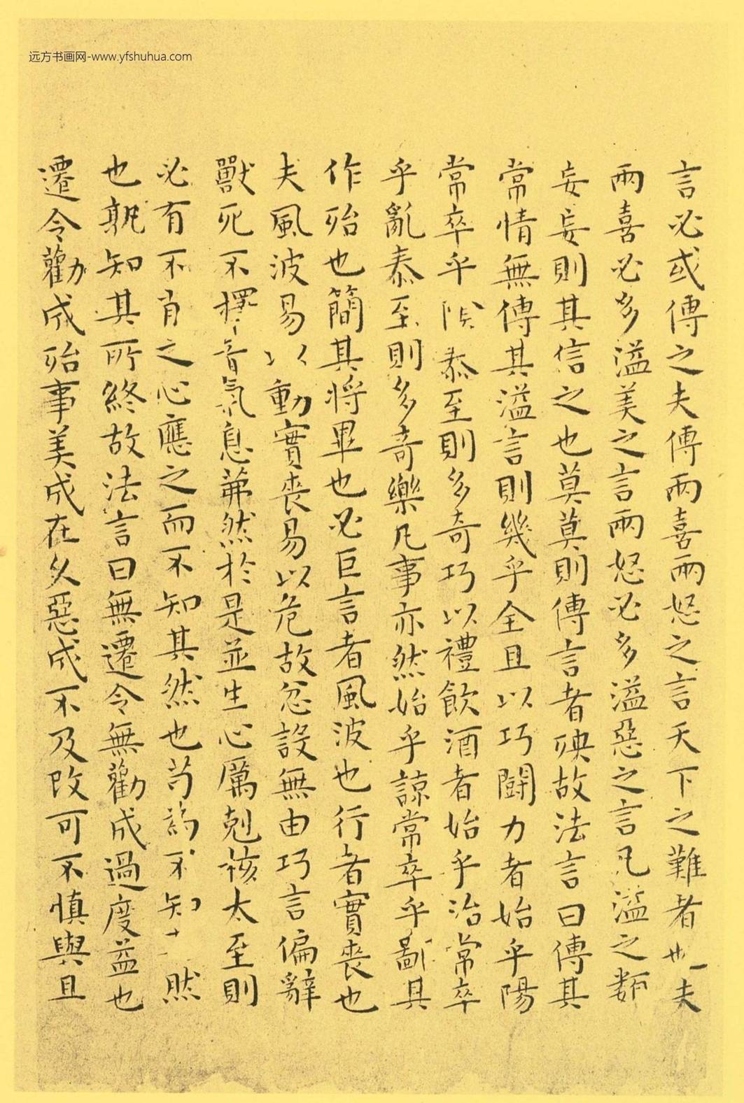 远方书画网-www.yfshuhua.com
言必或傳之夫傳兩喜兩怒之言天下之難者也夫
兩喜必多溢美之言兩怒必多溢惡之言凡溢之類
妄妄則其信之也莫莫則傳言者殃故法言曰傳其
常情無傳其溢言則幾乎全且以巧鬪力者始乎陽
常卒乎陰泰至則多奇巧以禮飲酒者始乎治常卒
乎亂泰至則多奇樂凡事亦然始乎諒常卒乎鄙其
作殆也簡其將畢也必巨言者風波也行者實喪也
夫風波易以動實喪易以危故忿設無由巧言偏辭
獸死不擇音氣息茀然於是並生心厲剋核太至則
必有不肖之心應之而不知其然也苟 不知 然
也孰知其所終故法言曰無遷令無勸成過度益也
遷令勸成殆事美成在久惡成不及改可不慎與且